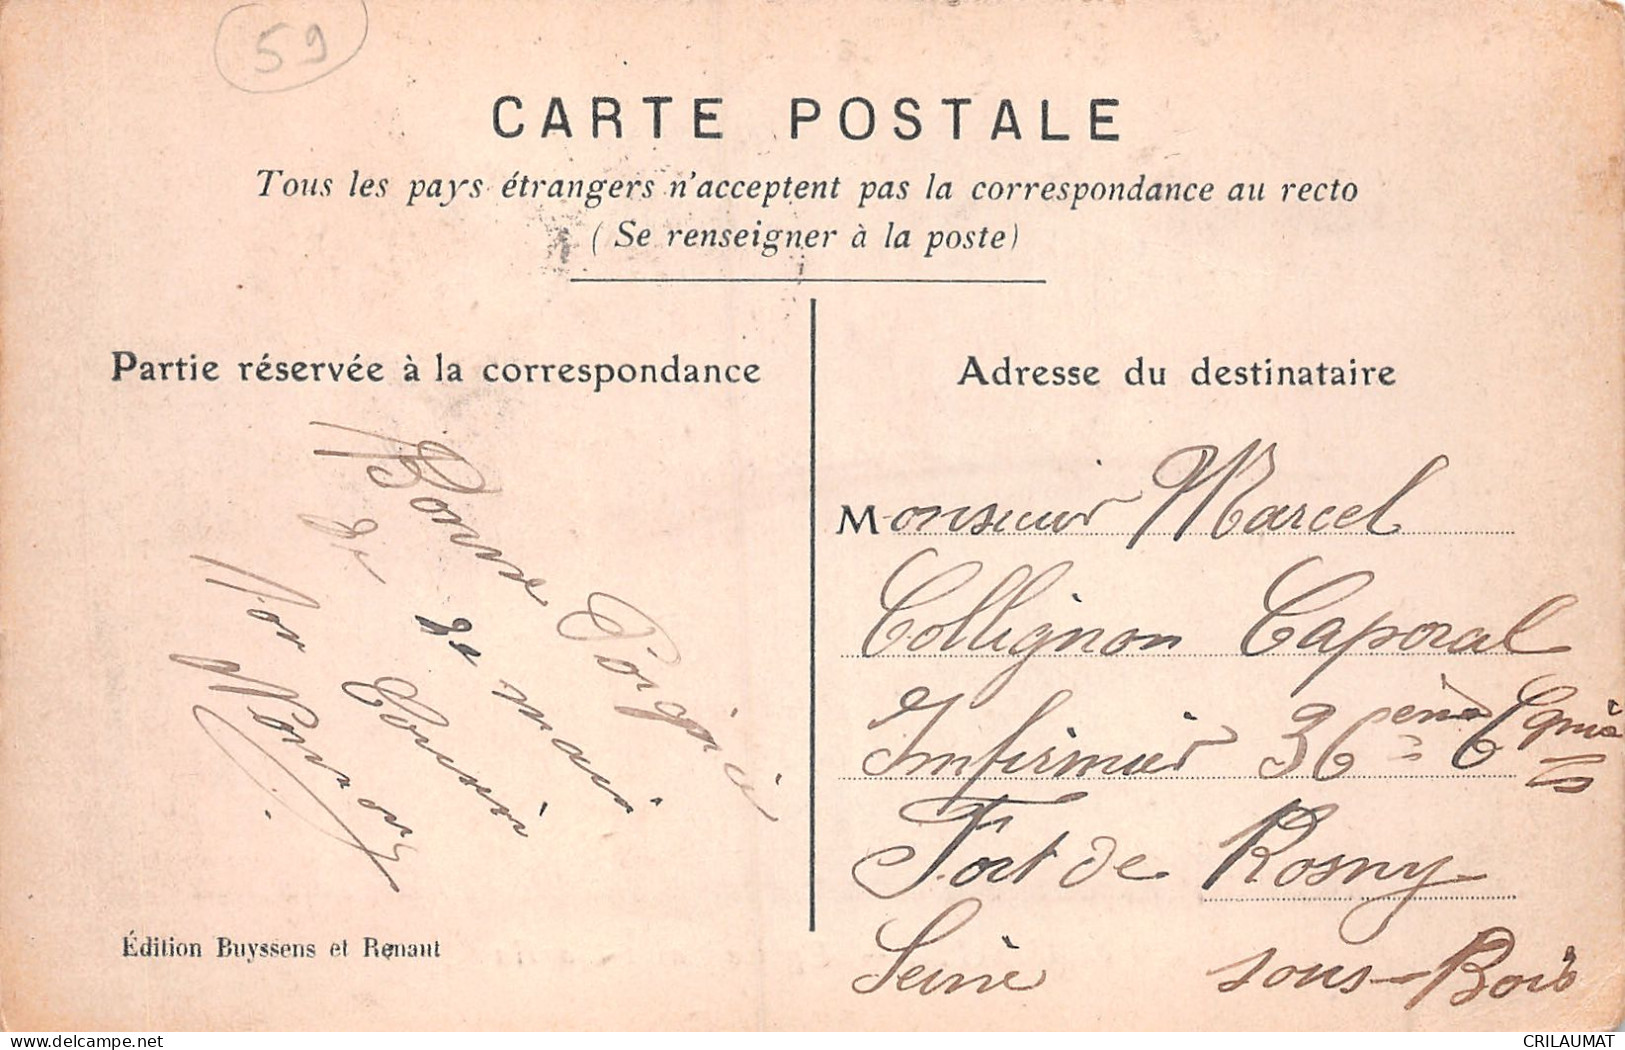 59
CARTE POSTALE
Tous les pays étrangers n'acceptent pas la correspondance au recto
(Se renseigner à la poste)
Partie réservée à la correspondance
Bonne
de mai
Cousin
Adresse du destinataire
Monsieur Marcel
Collignon Caporal
Infirmier 36ème Cgnie
Fort de Rosny
Seine sous-Bois
Édition Buyssens et Renaut
CRILAUMAT